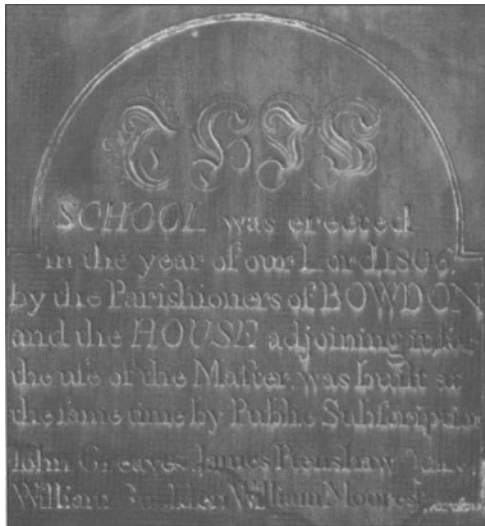 THIS
SCHOOL was erected
in the year of our Lord 1806.
by the Parishioners of BOWDON
and the HOUSE adjoining it for
the uſe of the Maſter was built at
the ſame time by Public Subſcription
John Greaves James Renshaw
William William Moores